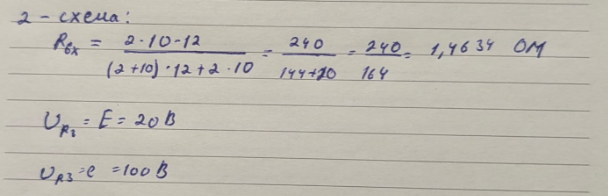 2 - схема:
Rвх = 2·10-12 / (2+10)·12+2·10 = 240 / 144+20 = 240 / 164 = 1,4634 ОМ
UR2 = E = 20 В
UR3 = e = 100 В